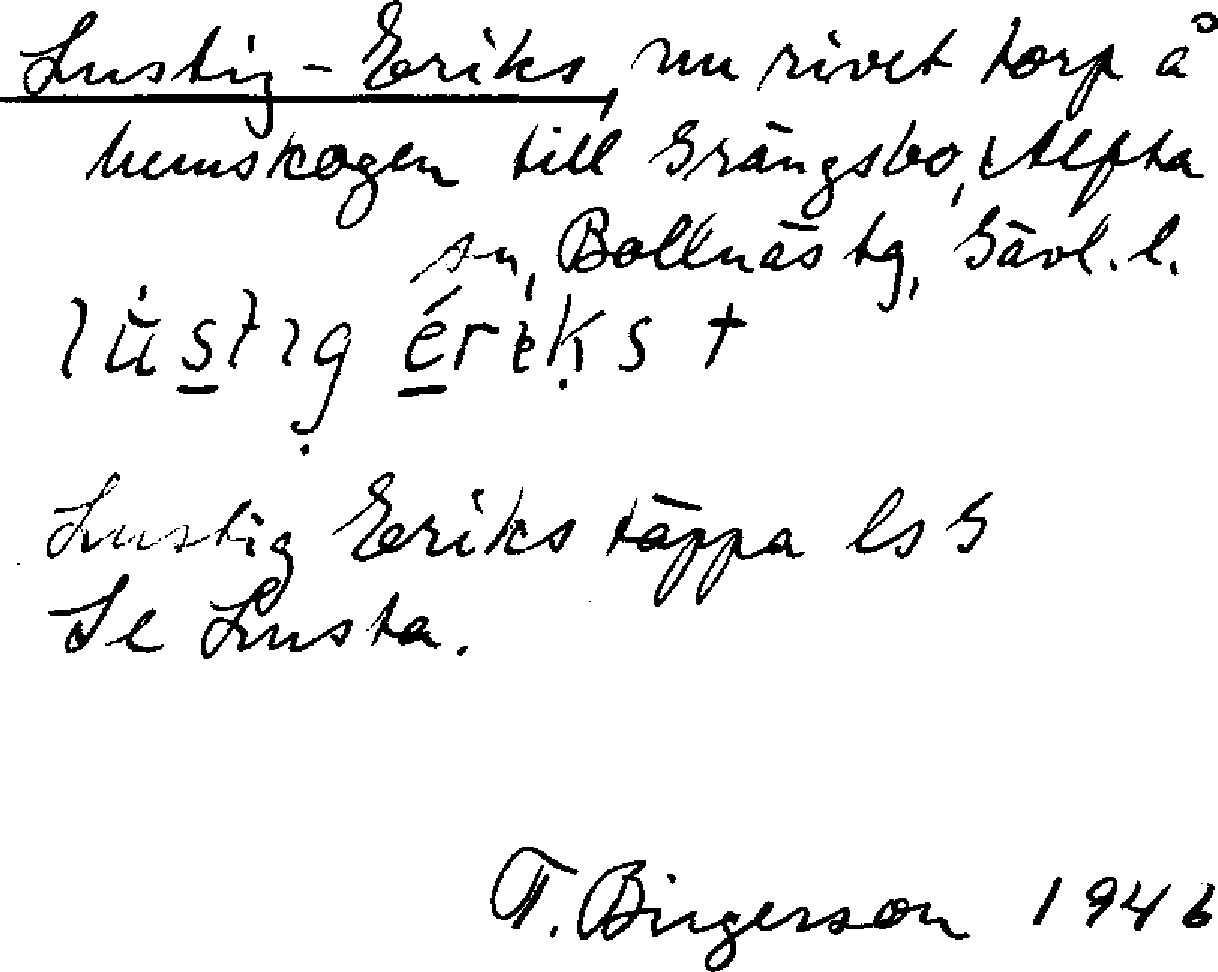 Lustig-Eriks, nu rivet torp å
hemskogen till Grängsbo, Alfta
sn, Bollnäs tg, Gävl. l.
lu̇stig ériks †
Lustig Eriks täppa ls G
Se Lusta.
T. Birgerson 1946